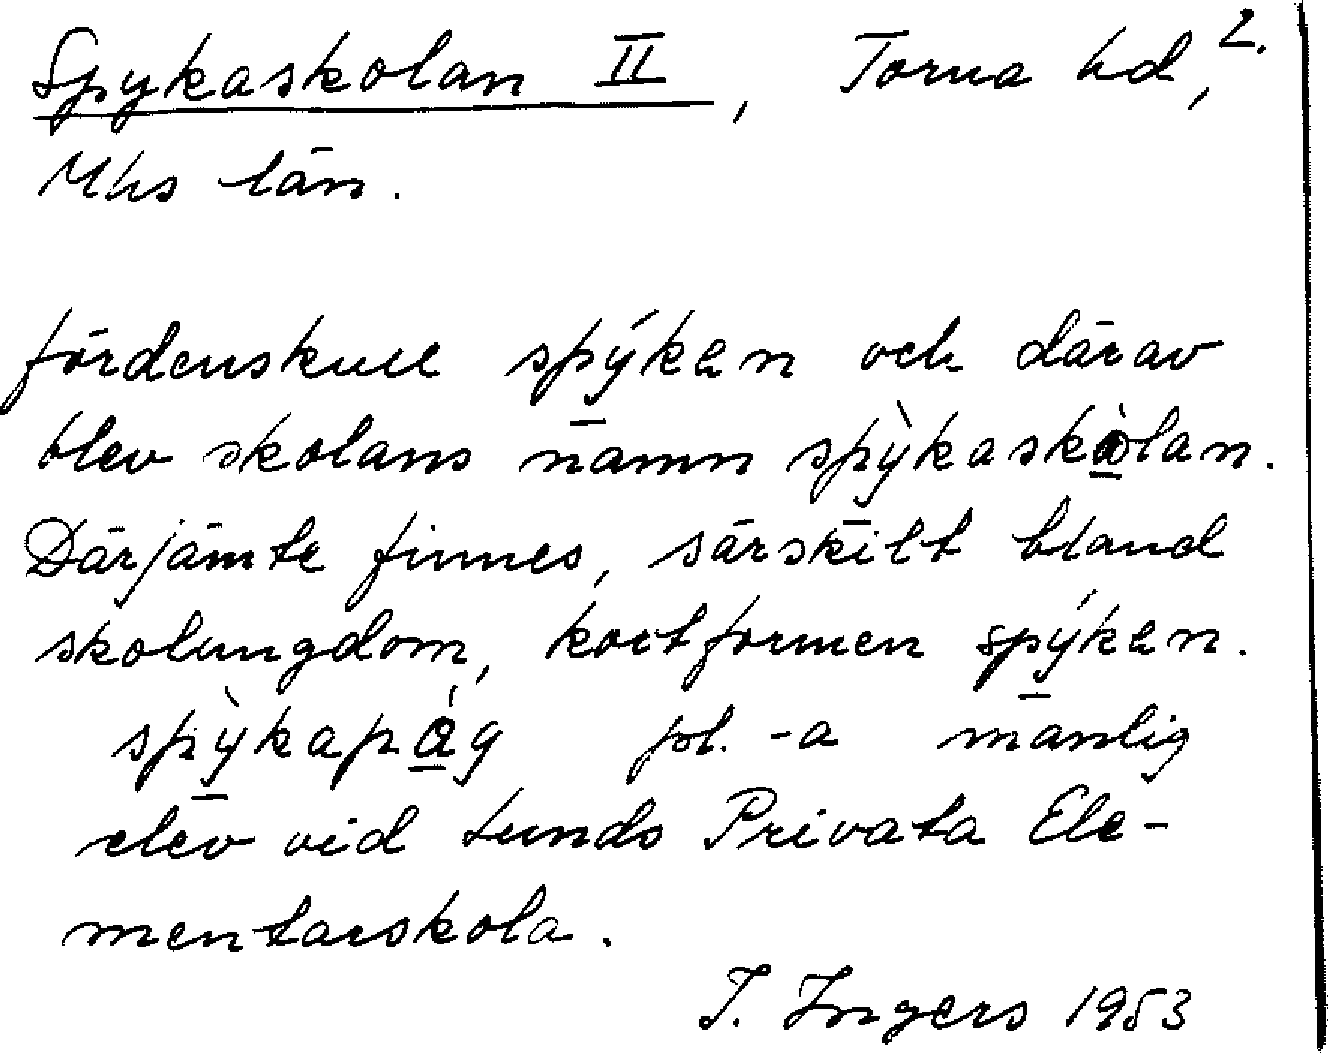 Spykaskolan II, Torna hd, 2.
Mhs län.
fördenskull spý̱kan och därav
blev skolans namn spỳ̱kaskò̱lan.
Därjämte finnes, särskilt bland
skolungdom, kortformen spý̱kan.
spỳ̱kapà̱g pl. -a manlig
elev vid Lunds Privata Ele-
mentarskola.
I. Ingers 1953